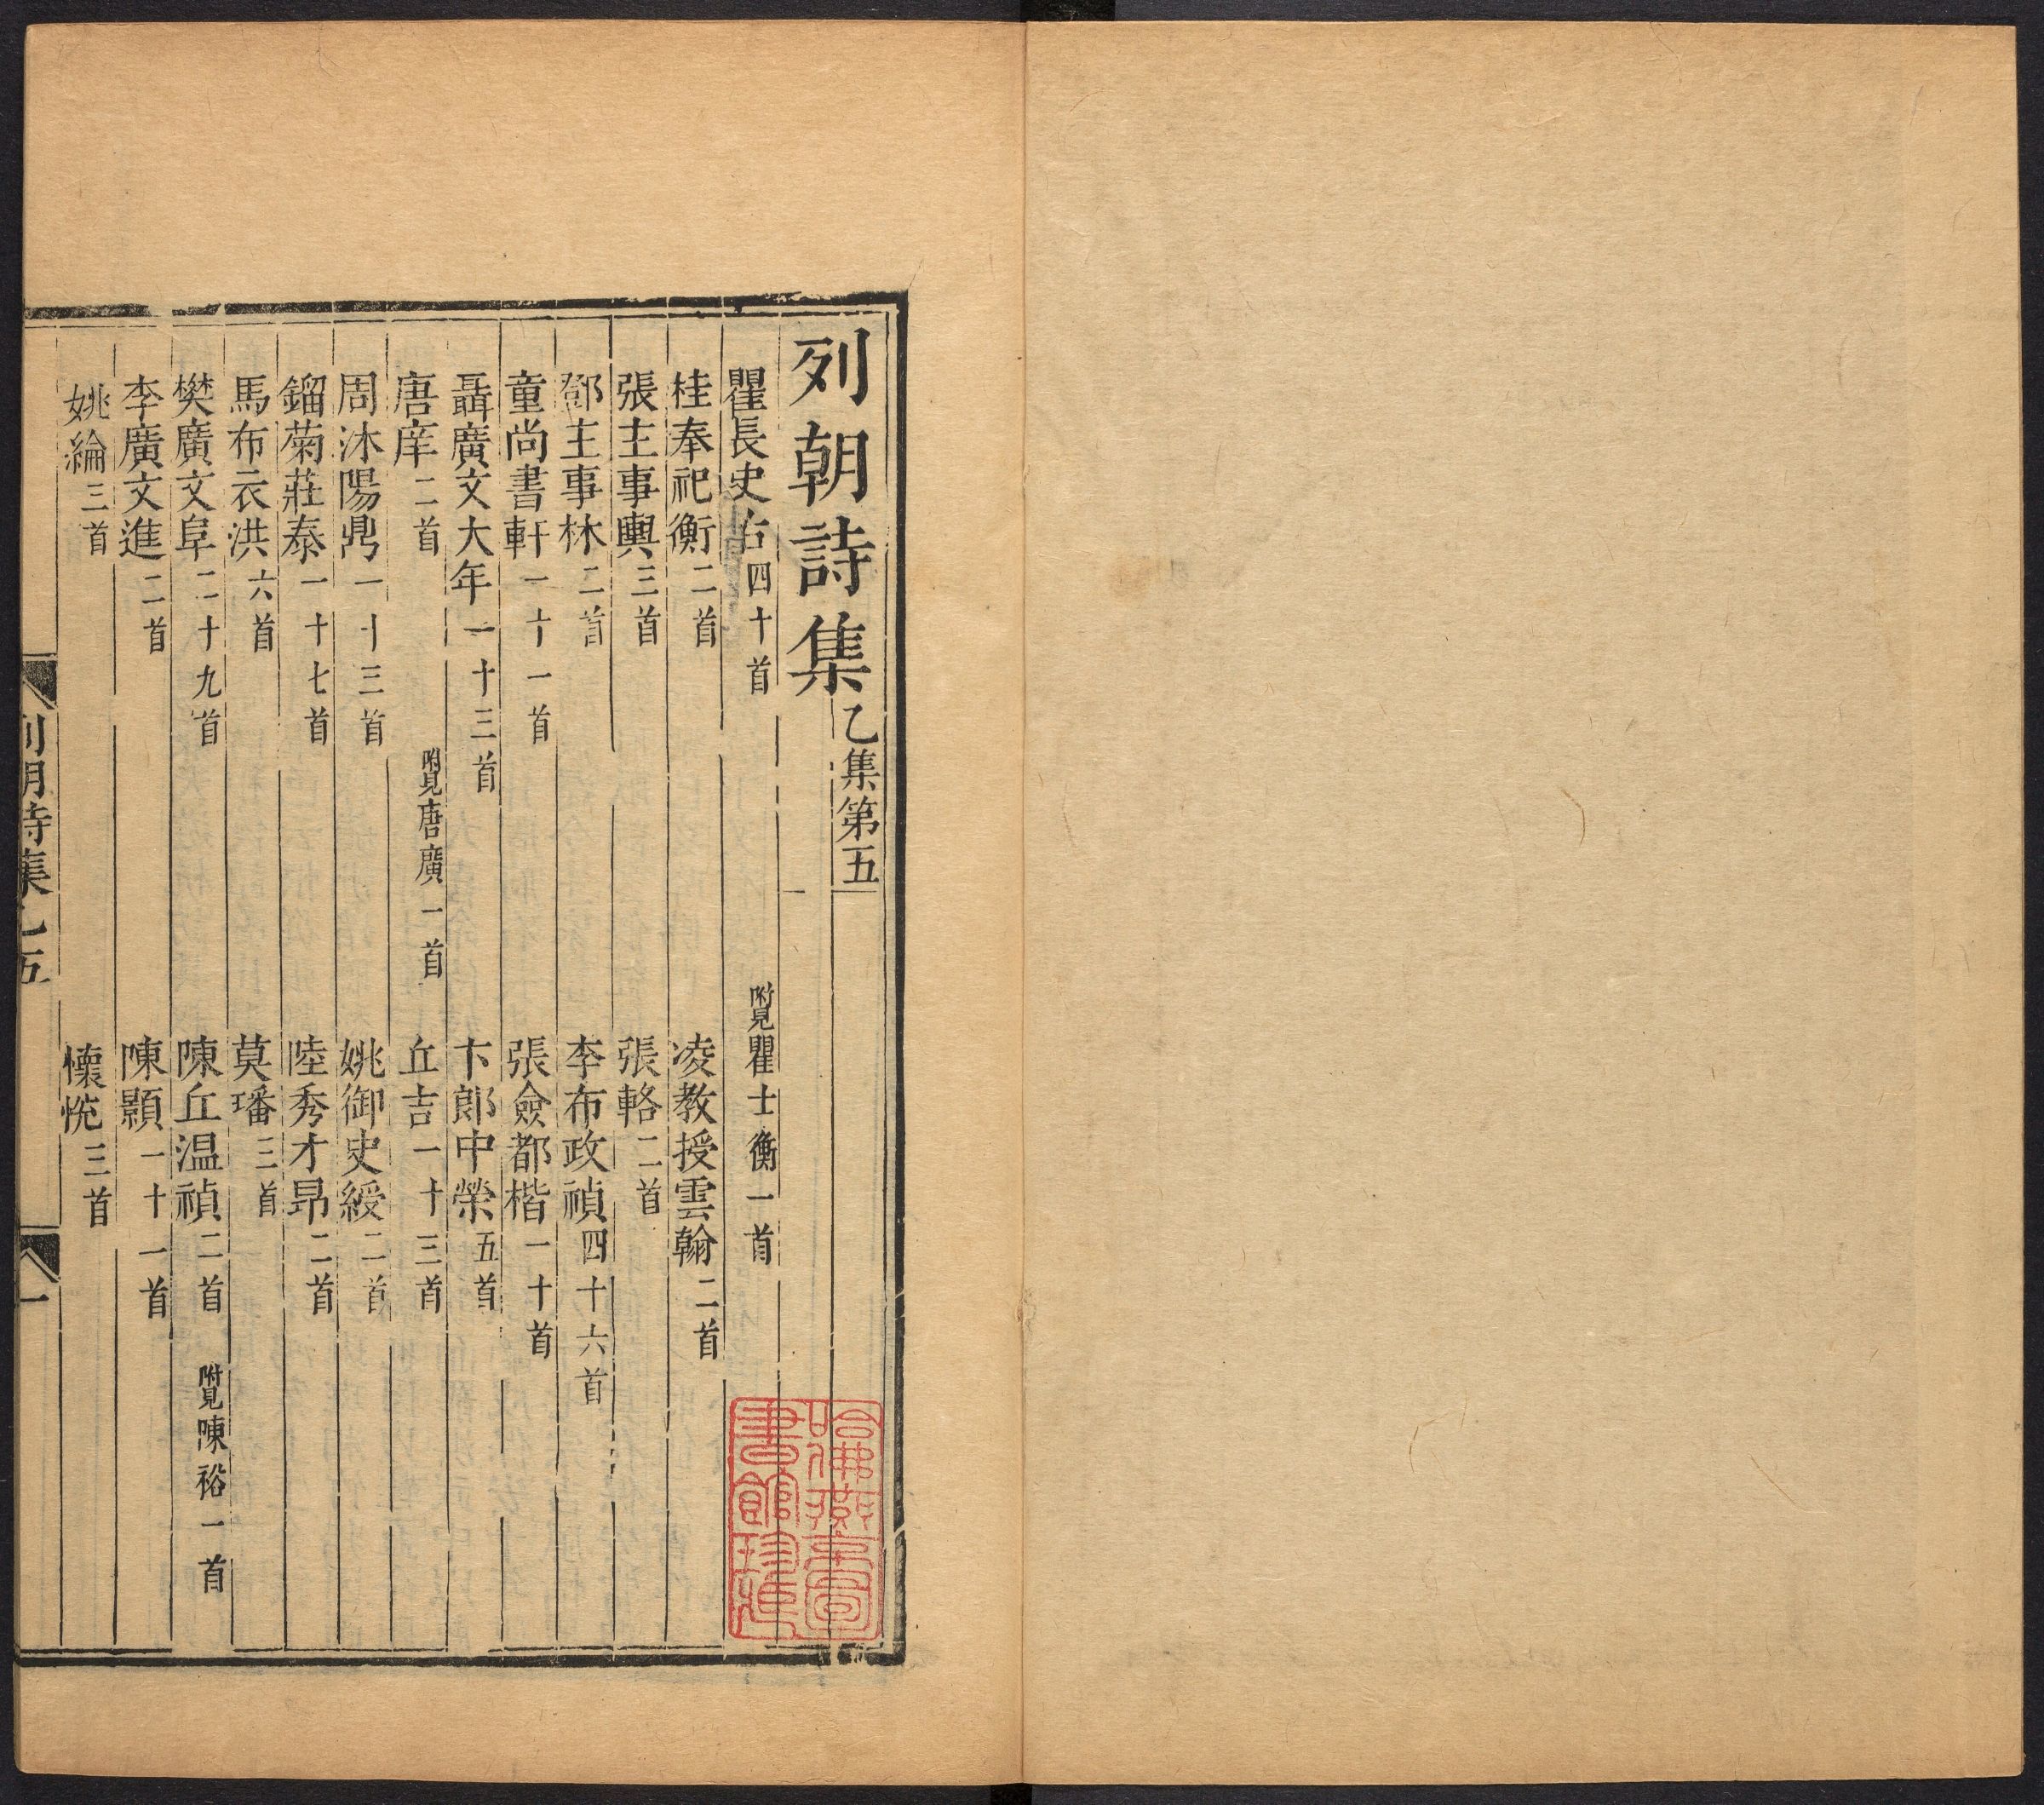 列朝詩集乙集第五
瞿長史佑四十首 附見瞿士衡一首
桂奉祀衡二首 凌教授雲翰二首
張主事輿三首 張輅二首
鄧主事林二首 李布政禎四十六首
童尚書軒一十一首 張僉都楷一十首
聶廣文大年一十三首 卞郎中榮五首
唐庠二首 附見唐廣一首 丘吉一十三首
周沐陽鼎一十三首 姚御史綬二首
鎦菊莊泰一十七首 陸秀才昂二首
馬布衣洪六首 莫璠三首
樊廣文阜二十九首 陳丘温禎二首 附見陳裕一首
李廣文進二首 陳顥一十一首
姚綸三首 懷悅三首
列朝詩集乙五 一
哈佛燕京圖
書館珍藏